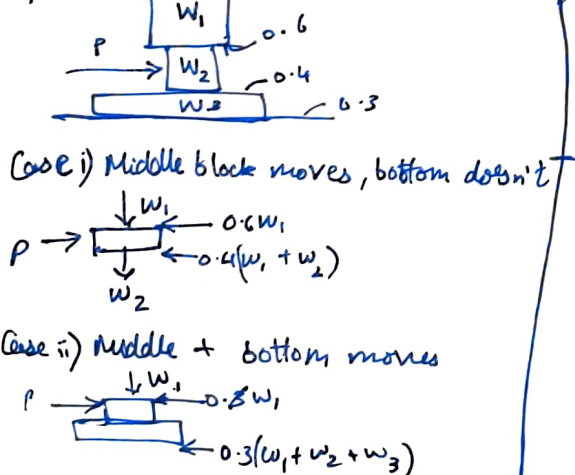 W1
0.6
P
W2
0.4
W3
0.3
Case i) Middle block moves, bottom doesn't
W1
0.6W1
P
0.4(W1 + W2)
W2
Case ii) Middle + bottom moves
W1
P
W1
0.3(W1 + W2 + W3)